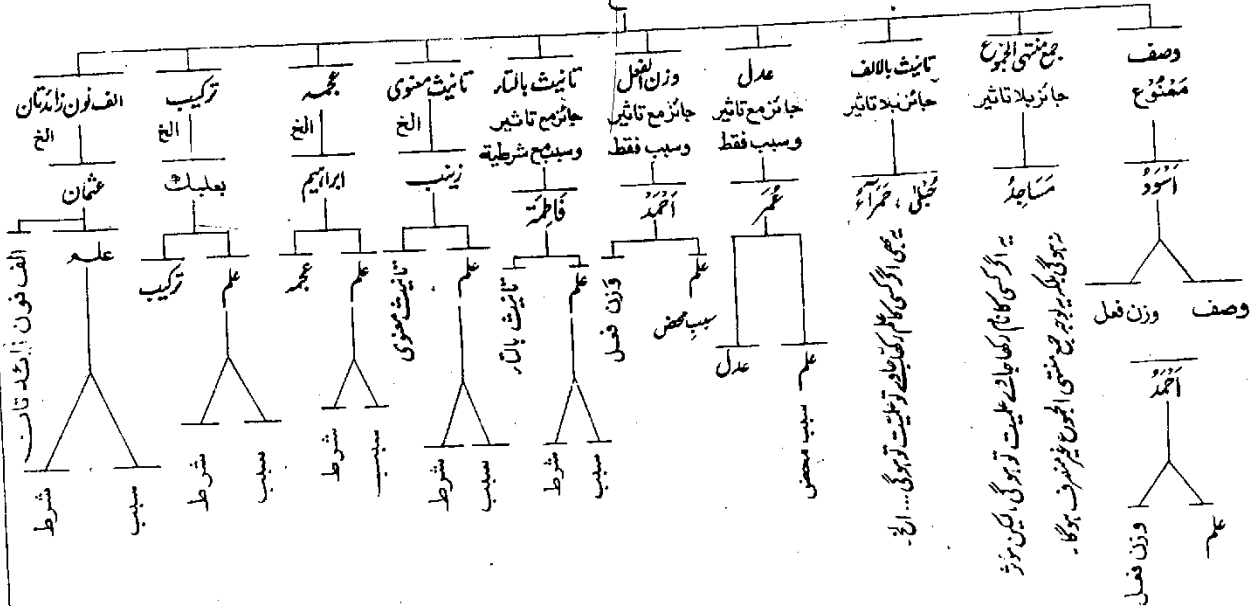 وصف
ممنوع
اَسْوَدُ
وصف
وزن فعل
اَحْمَدُ
علم
وزن فعل
جمع منتہی الجموع
جائز بلا تاثیر
مَسَاجِدُ
یہ اگر کسی کا نام رکھا جاوے علمیت تو ہوگی، لیکن مؤثر
نہ ہوگی بلکہ یہ بوجہ جمع منتہی الجموع غیر منصرف ہوگا۔
تانیث بالالف
جائز بلا تاثیر
حُبْلٰی ، حَمْرَآءُ
یہ بھی اگر کسی کا علم رکھا جاوے تو علمیت تو ہوگی... الخ۔
عدل
جائز مع تاثیر
وسبب فقط
عُمَرُ
علم
سبب محض
عدل
وزن الفعل
جائز مع تاثیر
وسبب فقط
اَحْمَدُ
علم
سببِ محض
وزن فعل
تانیث بالتاء
جائز مع تاثیر
وسبب مع شرطیة
فَاطِمَة
علم
تانیث بالتاء
سبب
شرط
تانیث معنوی
الخ
زینب
علم
تانیث معنوی
سبب
شرط
عجمہ
الخ
ابراہیم
علم
عجمہ
سبب
شرط
ترکیب
الخ
بعلبك
علم
ترکیب
سبب
شرط
الف نون زائدتان
الخ
عثمان
علم
الف نون زائدتان
سبب
شرط